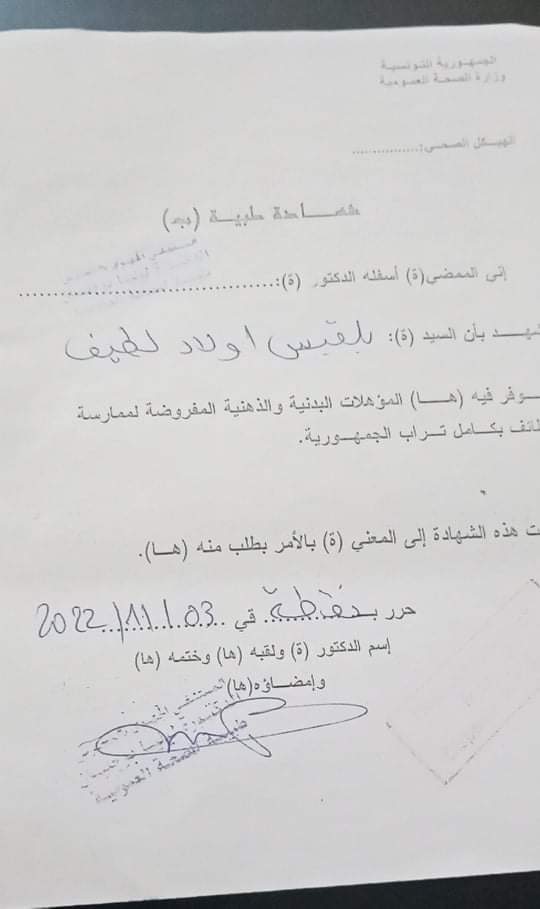 الجمهورية التونسية
وزارة الصحة العمومية
الهيكل الصحي:................
شهادة طبية (بد)
إني الممضي(ة) أسفله الدكتور (ة):......................................
بأن السيد (ة): بلقيس اولاد لطيف
وفر فيه (هـا) المؤهلات البدنية والذهنية المفروضة لممارسة
ائف بكامل تراب الجمهورية.
ت هذه الشهادة إلى المعني (ة) بالأمر بطلب منه (هـا).
حرر بـنفطة في 2022/11/03
إسم الدكتور (ة) ولقبه (ها) وختمه (ها)
وإمضاؤه(ها)
الصحة العمومية